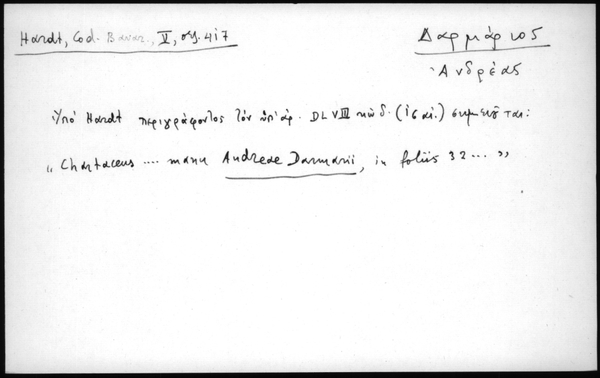 Hardt, Cod. Bavar., V, σελ. 417
Δαρμάριος
Ἀνδρέας
Ὑπό Hardt περιγράφοντος τόν ὑπ' ἀρ. DLVIII κώδ. (ις αἰ.) σημειοῦται:
„ Chartaceus .... manu Andreae Darmarii, in foliis 32 ... "